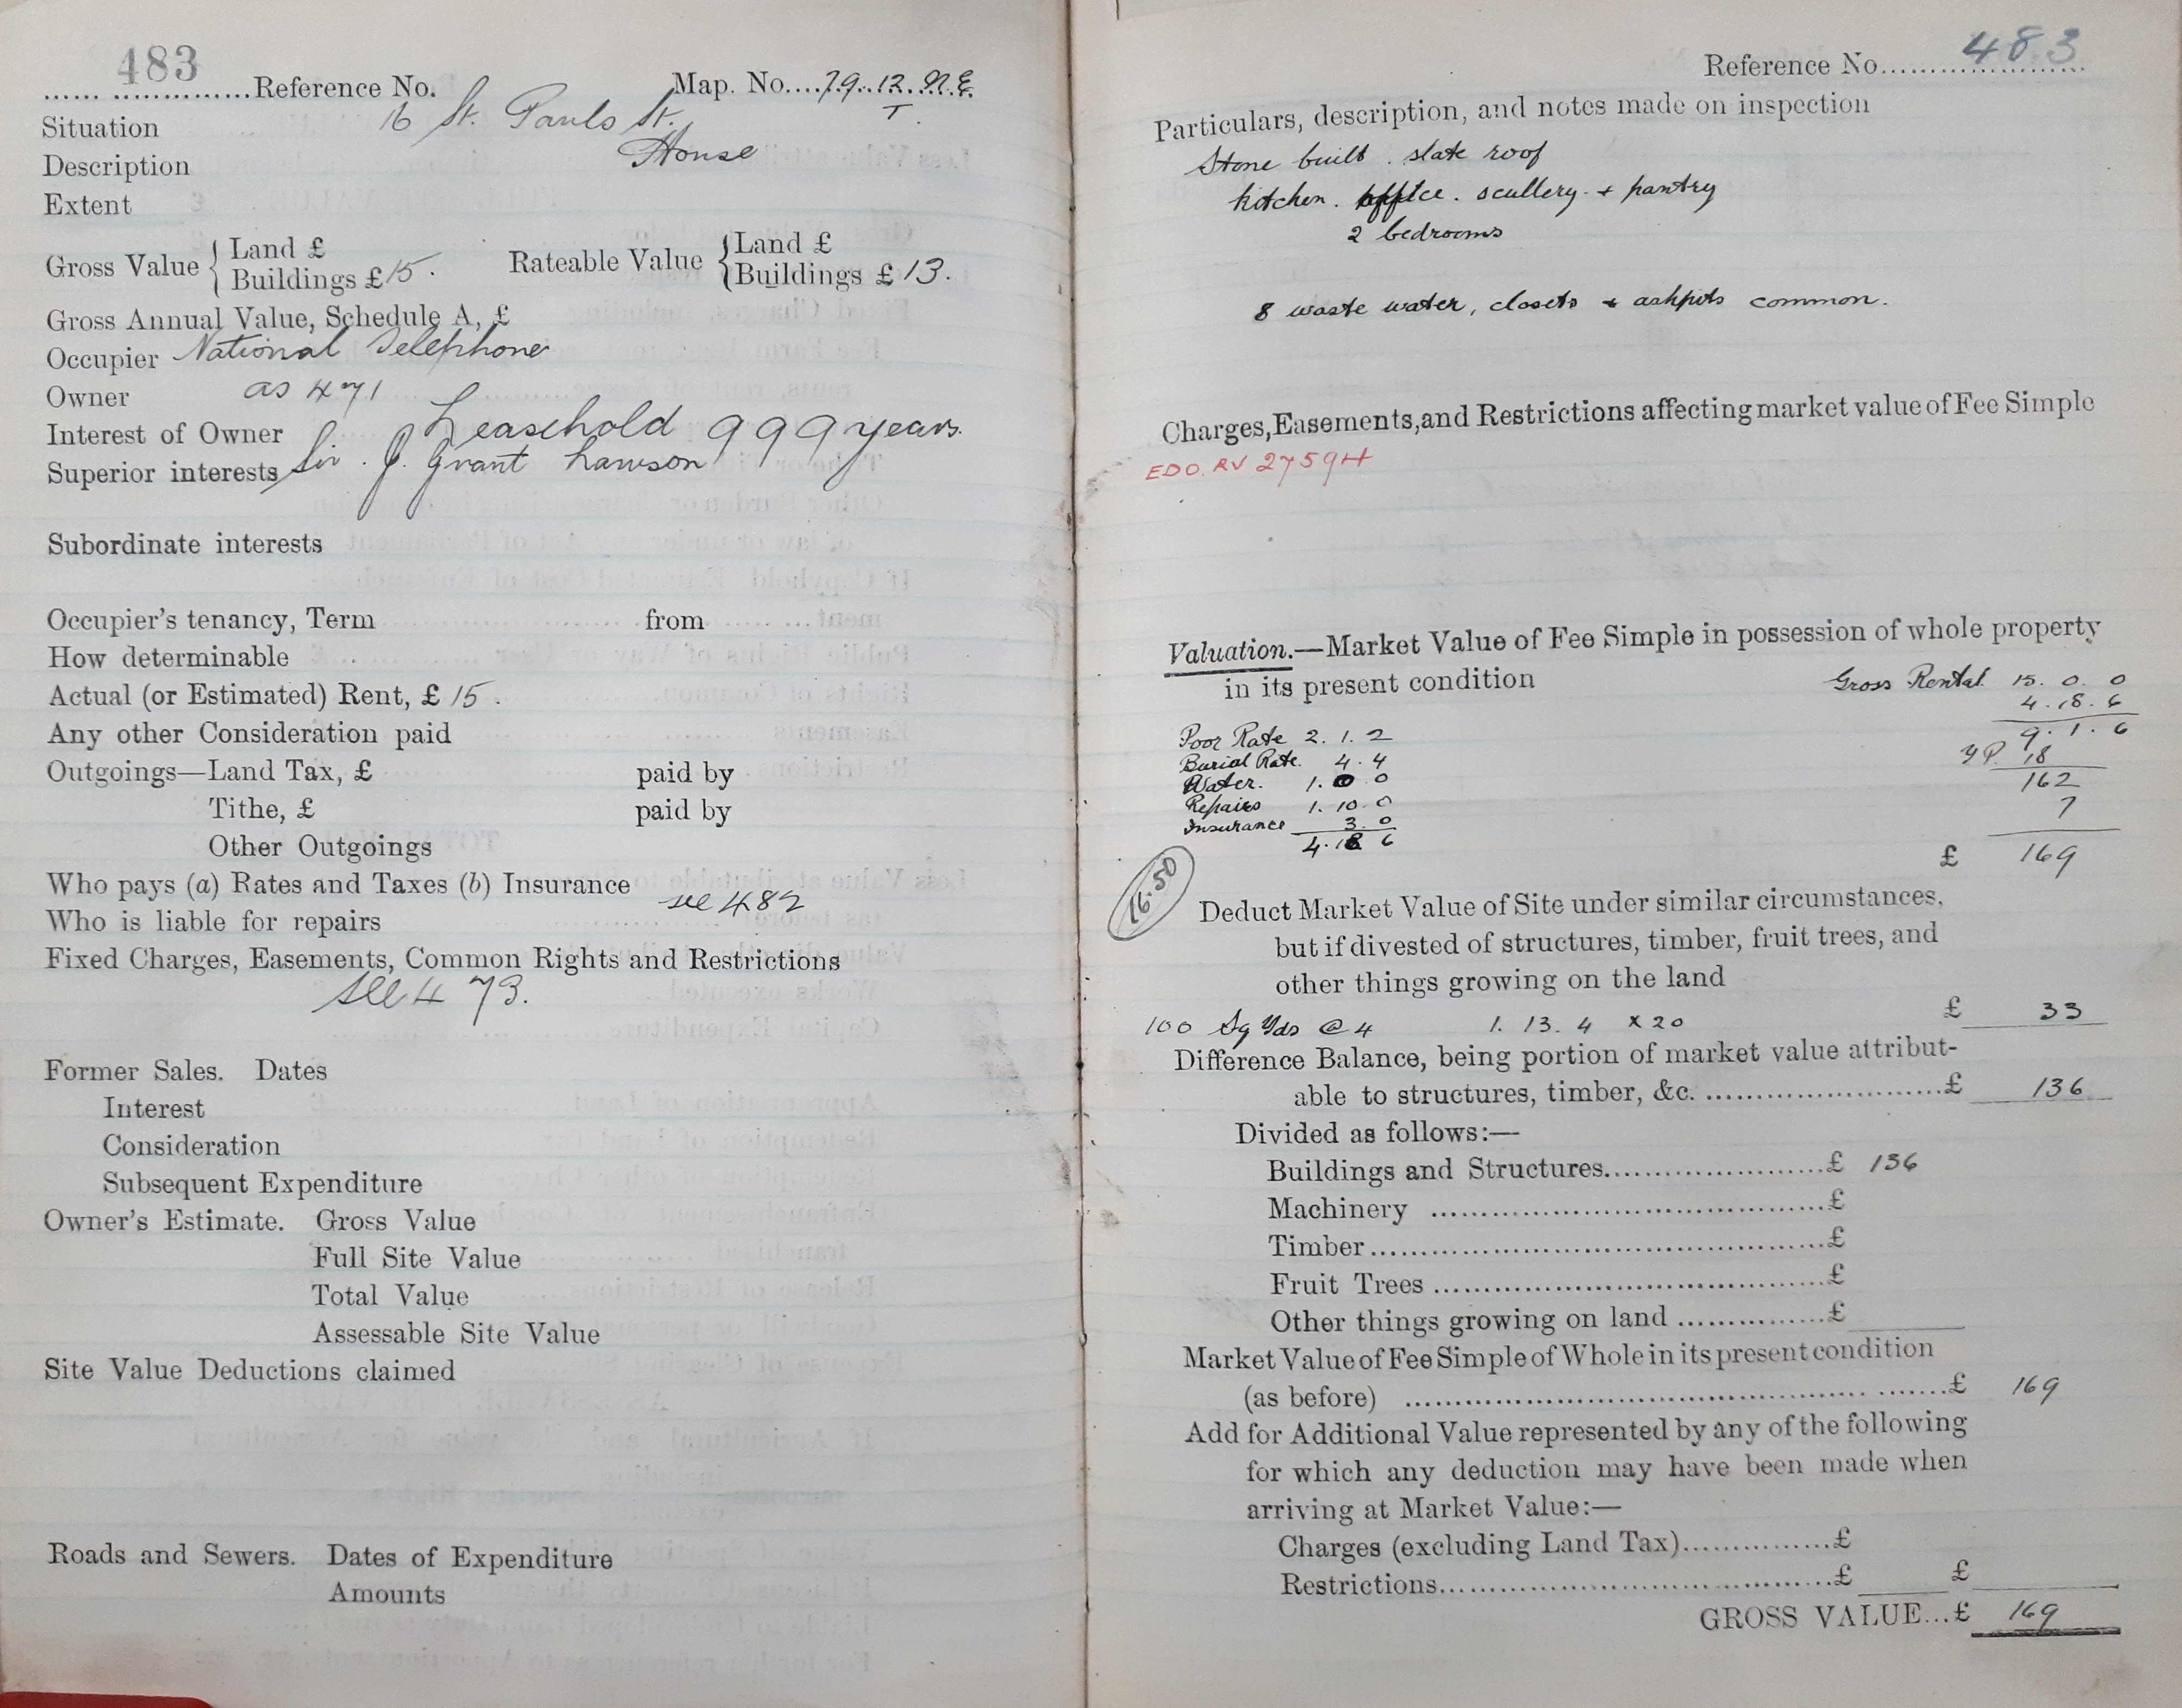 483
Reference No. Map. No....79.12.N.E
T.
Situation 16 St. Pauls St.
Description House
Extent
Gross Value { Land £
Buildings £ 15. Rateable Value { Land £
Buildings £ 13.
Gross Annual Value, Schedule A, £
Occupier National Telephone
Owner as 471
Interest of Owner Leasehold 999 years.
Superior interests Sir. J. Grant Lawson
Subordinate interests
Occupier's tenancy, Term from
How determinable
Actual (or Estimated) Rent, £ 15.
Any other Consideration paid
Outgoings—Land Tax, £ paid by
Tithe, £ paid by
Other Outgoings
Who pays (a) Rates and Taxes (b) Insurance
see 482
Who is liable for repairs
Fixed Charges, Easements, Common Rights and Restrictions
see 473.
Former Sales. Dates
Interest
Consideration
Subsequent Expenditure
Owner's Estimate. Gross Value
Full Site Value
Total Value
Assessable Site Value
Site Value Deductions claimed
Roads and Sewers. Dates of Expenditure
Amounts
Reference No. 483
Particulars, description, and notes made on inspection
Stone built. slate roof
kitchen. office. scullery. + pantry
2 bedrooms
8 waste water, closets + ashpits common.
Charges, Easements, and Restrictions affecting market value of Fee Simple
EDO. RV 2759H
Valuation.—Market Value of Fee Simple in possession of whole property
in its present condition Gross Rental 15. 0. 0
4. 18. 6
Poor Rate 2. 1. 2 9. 1. 6
Burial Rate. 4. 4 YP. 18
Water. 1. 0 0 162
Repairs 1. 10. 0 7
Insurance 3. 0
4. 18 6 £ 169
16.50
Deduct Market Value of Site under similar circumstances,
but if divested of structures, timber, fruit trees, and
other things growing on the land
100 Sq Yds @ 4 1. 13. 4 x 20 £ 33
Difference Balance, being portion of market value attribut-
able to structures, timber, &c. £ 136
Divided as follows:—
Buildings and Structures £ 136
Machinery £
Timber £
Fruit Trees £
Other things growing on land £
Market Value of Fee Simple of Whole in its present condition
(as before) £ 169
Add for Additional Value represented by any of the following
for which any deduction may have been made when
arriving at Market Value:—
Charges (excluding Land Tax) £
Restrictions £ £
GROSS VALUE...£ 169